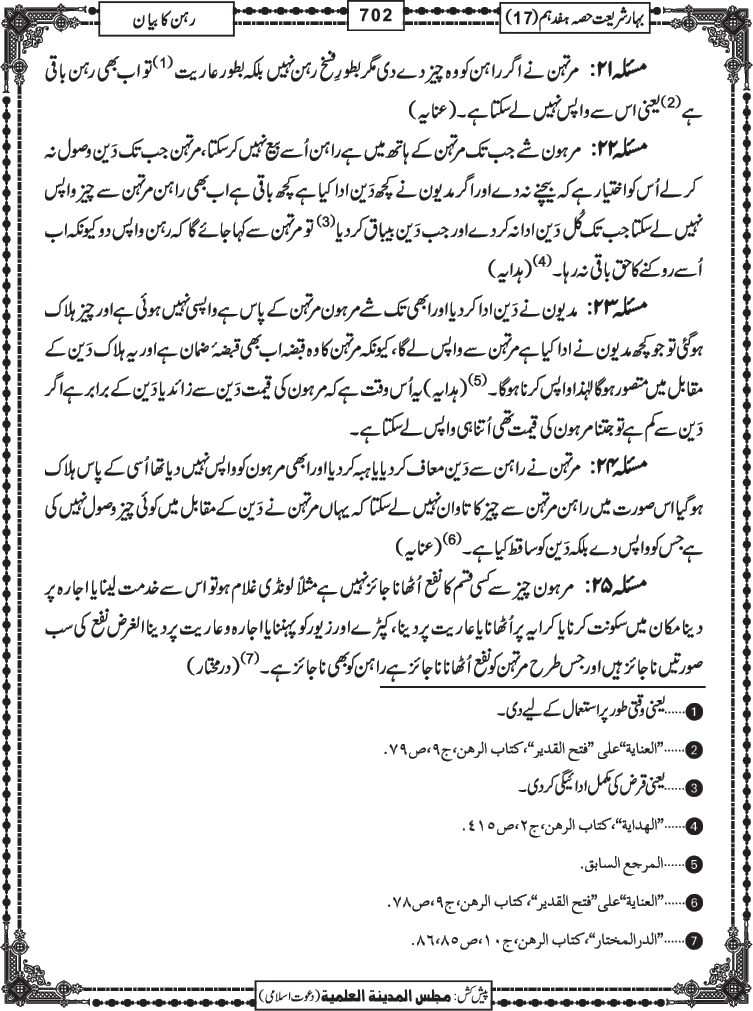 بہارِشریعت حصہ ہفدہم (17)
702
رہن کا بیان
مسئلہ ۲۱: مرتہن نے اگر راہن کو وہ چیز دے دی مگر بطورِ فسخِ رہن نہیں بلکہ بطور عاریت (1) تو اب بھی رہن باقی
ہے (2) یعنی اس سے واپس لے سکتا ہے۔ (عنایہ)
مسئلہ ۲۲: مرہون شے جب تک مرتہن کے ہاتھ میں ہے راہن اُسے بیع نہیں کرسکتا، مرتہن جب تک دَین وصول نہ
کرلے اُس کو اختیار ہے کہ بیچنے نہ دے اور اگر مدیون نے کچھ دَین ادا کیا ہے کچھ باقی ہے اب بھی راہن مرتہن سے چیز واپس
نہیں لے سکتا جب تک کُل دَین ادا نہ کردے اور جب دَین بیباق کردیا (3) تو مرتہن سے کہا جائے گا کہ رہن واپس دو کیونکہ اب
اُسے روکنے کا حق باقی نہ رہا۔ (4) (ہدایہ)
مسئلہ ۲۳: مدیون نے دَین ادا کردیا اور ابھی تک شے مرہون مرتہن کے پاس ہے واپسی نہیں ہوئی ہے اور چیز ہلاک
ہوگئی تو جو کچھ مدیون نے ادا کیا ہے مرتہن سے واپس لے گا، کیونکہ مرتہن کا وہ قبضہ اب بھی قبضۂ ضمان ہے اور یہ ہلاک دَین کے
مقابل میں متصور ہوگا لہٰذا واپس کرنا ہوگا۔ (5) (ہدایہ) یہ اُس وقت ہے کہ مرہون کی قیمت دَین سے زائد یا دَین کے برابر ہے اگر
دَین سے کم ہے تو جتنا مرہون کی قیمت تھی اُتنا ہی واپس لے سکتا ہے۔
مسئلہ ۲۴: مرتہن نے راہن سے دَین معاف کردیا یا ہبہ کردیا اور ابھی مرہون کو واپس نہیں دیا تھا اُسی کے پاس ہلاک
ہوگیا اس صورت میں راہن مرتہن سے چیز کا تاوان نہیں لے سکتا کہ یہاں مرتہن نے دَین کے مقابل میں کوئی چیز وصول نہیں کی
ہے جس کو واپس دے بلکہ دَین کو ساقط کیا ہے۔ (6) (عنایہ)
مسئلہ ۲۵: مرہون چیز سے کسی قسم کا نفع اُٹھانا جائز نہیں ہے مثلاً لونڈی غلام ہو تو اس سے خدمت لینا یا اجارہ پر
دینا مکان میں سکونت کرنا یا کرایہ پر اُٹھانا یا عاریت پر دینا، کپڑے اور زیور کو پہننا یا اجارہ و عاریت پر دینا الغرض نفع کی سب
صورتیں ناجائز ہیں اور جس طرح مرتہن کو نفع اُٹھانا ناجائز ہے راہن کو بھی ناجائز ہے۔ (7) (درمختار)
1 ......یعنی وقتی طور پر استعمال کے لیے دی۔
2 ......”العناية“على ”فتح القدير“، كتاب الرهن، ج۹، ص۷۹.
3 ......یعنی قرض کی مکمل ادائیگی کردی۔
4 ......”الهداية“، كتاب الرهن، ج۲، ص٤١٥.
5 ......المرجع السابق.
6 ......”العناية“على ”فتح القدير“، كتاب الرهن، ج۹، ص۷۸.
7 ......”الدرالمختار“، كتاب الرهن، ج۱۰، ص۸۵،۸۶.
پیش کش: مجلس المدينة العلمية (دعوت اسلامی)